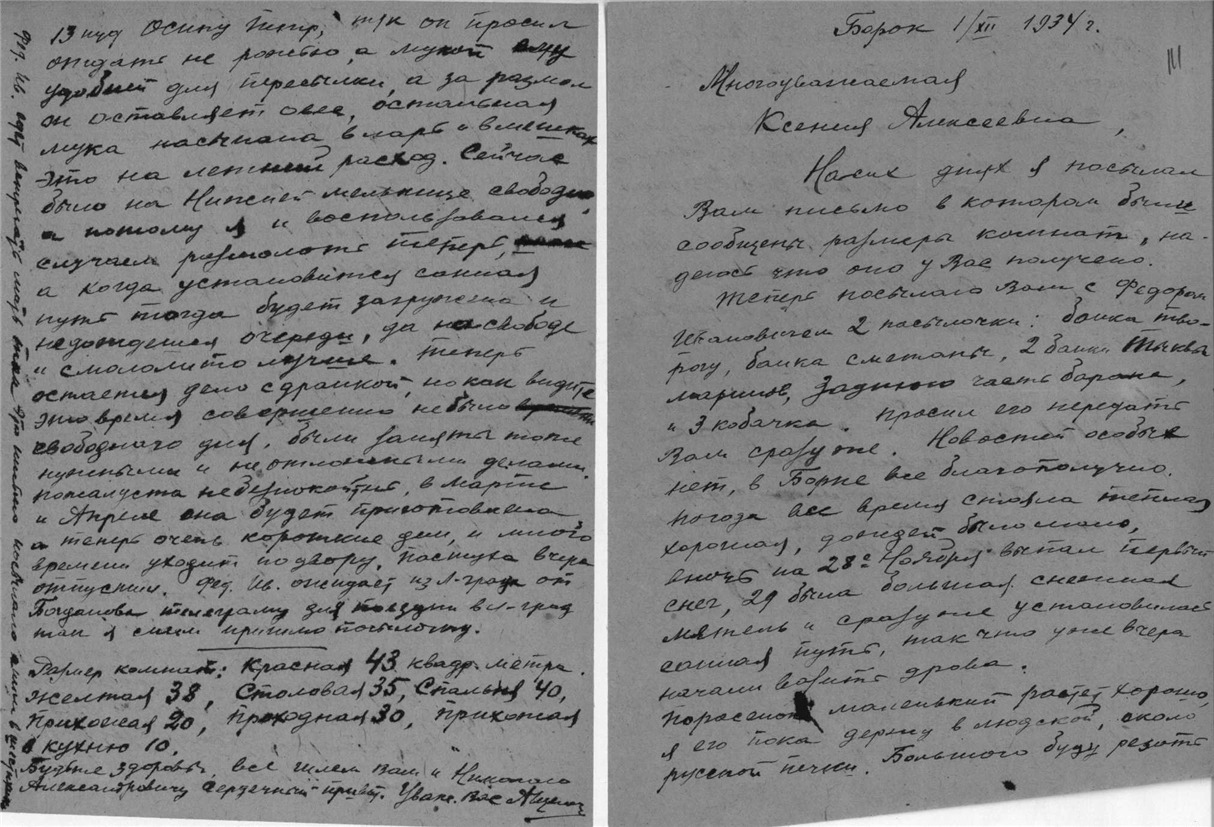 13 пуд Осипу Петр, т/к он просил
отдать не рожью, а мукой ему
удобней для пересылки, а за размол
он оставляет овес, остальная
мука насыпана в ларь и в мешках
это на летний расход. Сейчас
было на Нижней мельнице свободно,
а потому я и воспользовался
случаем размолоть теперь,
а когда установится санная
путь тогда будет загружена и
недождешся очереди, да на свободе
и смололи то лучше. Теперь
остается дело с дранкой, но как видите
это время совершенно небыло
свободнаго дня, были заняты тоже
нужными и не отложными делами.
пожалуста небезпокойтесь, в Марте
и Апреле она будет приготовлена
а теперь очень короткие дни, и много
времени уходит по двору, пастуха вчера
отпустил. Фед. Ив. ожидает из Л-града от
Богданова телеграмму для поездки в Л-град
так я с ним пошлю посылочку.
Размер комнат: Красная 43 квадр. метра.
Желтая 38, Столовая 35, Спальня 40,
Прихожая 20, проходная 30, прихожая
в кухню 10,
Будьте здоровы, все шлем Вам и Николаю
Александровичу сердечный привет. Уваж. Вас
Фед. Ив. едет
Борок 1/XII 1934 г.
Многоуважаемая
Ксения Алексеевна,
На сих днях я посылал
Вам письмо в котором были
сообщены размеры комнат, на-
деюсь что оно у Вас получено.
Теперь посылаю Вам с Федором
Ивановичем 2 посылочки: банка тво-
рогу, банка сметаны, 2 банки тыква
маринов, заднюю часть барана,
и 3 кобачка. Просил его передать
Вам сразу же. Новостей особых
нет, в Борке все благополучно.
Погода все время стояла теплая
хорошая, дождей было мало,
вночь на 28е Ноября выпал первый
снег, 29 была большая снежная
мятель и сразу же установилась
санная путь, так что уже вчера
начали возить дрова.
Поросенок маленький растет хорошо,
я его пока держу в людской, около
русской печки. Большого буду резать